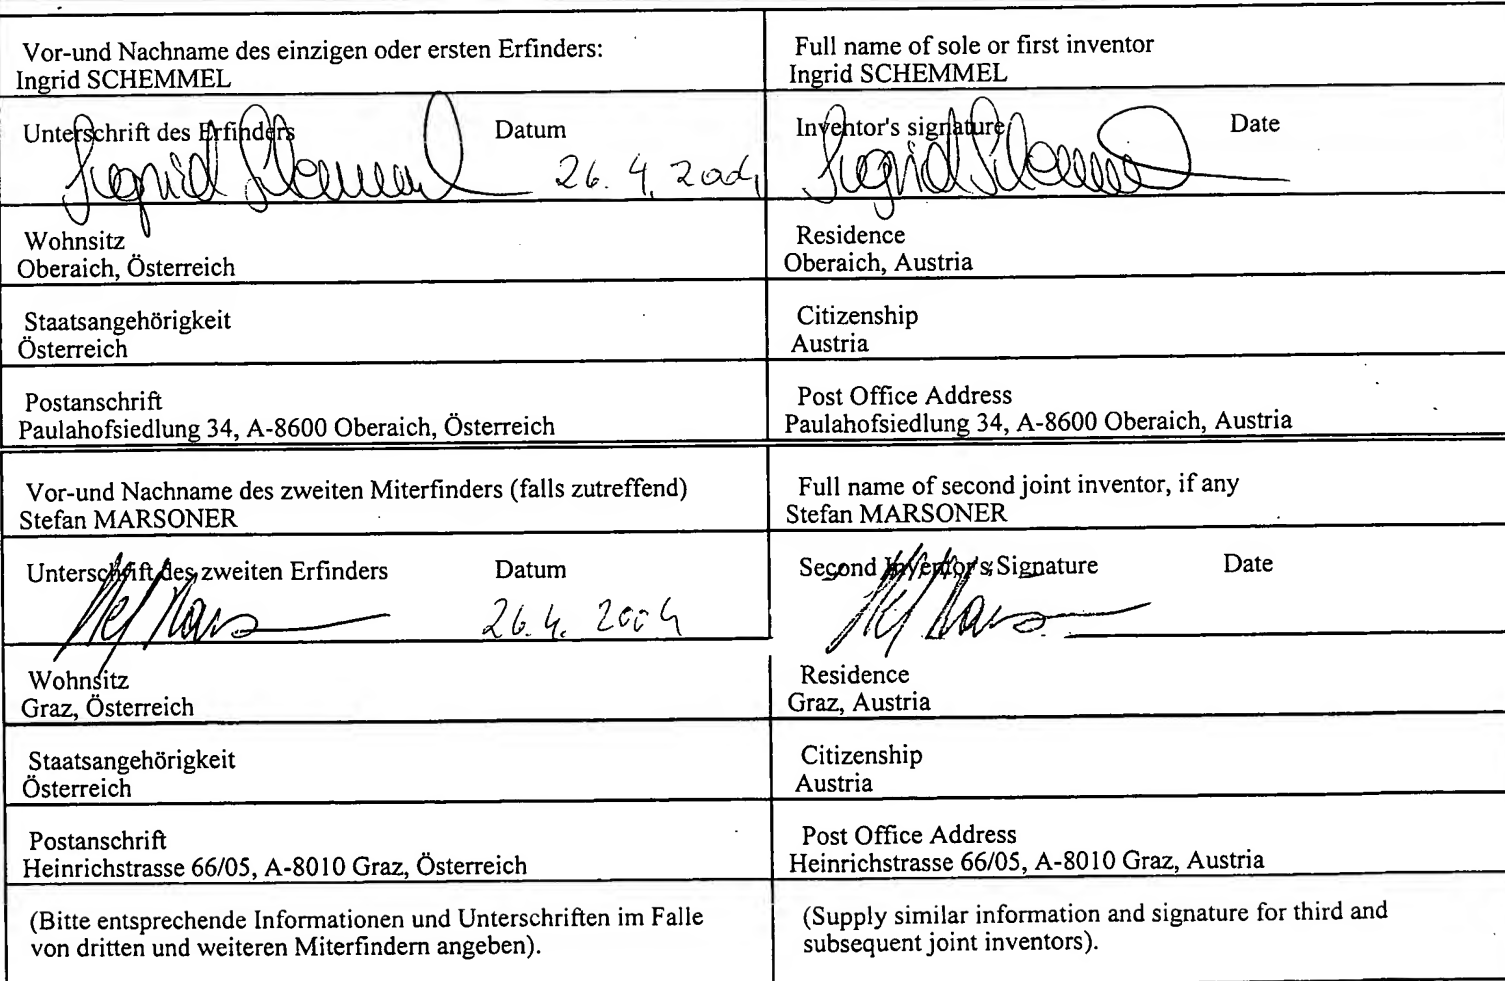 Vor-und Nachname des einzigen oder ersten Erfinders:
Ingrid SCHEMMEL
Full name of sole or first inventor
Ingrid SCHEMMEL
Unterschrift des Erfinders Datum
26. 4. 2004
Inventor's signature Date
Wohnsitz
Oberaich, Österreich
Residence
Oberaich, Austria
Staatsangehörigkeit
Österreich
Citizenship
Austria
Postanschrift
Paulahofsiedlung 34, A-8600 Oberaich, Österreich
Post Office Address
Paulahofsiedlung 34, A-8600 Oberaich, Austria
Vor-und Nachname des zweiten Miterfinders (falls zutreffend)
Stefan MARSONER
Full name of second joint inventor, if any
Stefan MARSONER
Unterschrift des zweiten Erfinders Datum
26. 4. 2004
Second Inventor's Signature Date
Wohnsitz
Graz, Österreich
Residence
Graz, Austria
Staatsangehörigkeit
Österreich
Citizenship
Austria
Postanschrift
Heinrichstrasse 66/05, A-8010 Graz, Österreich
Post Office Address
Heinrichstrasse 66/05, A-8010 Graz, Austria
(Bitte entsprechende Informationen und Unterschriften im Falle
von dritten und weiteren Miterfindern angeben).
(Supply similar information and signature for third and
subsequent joint inventors).